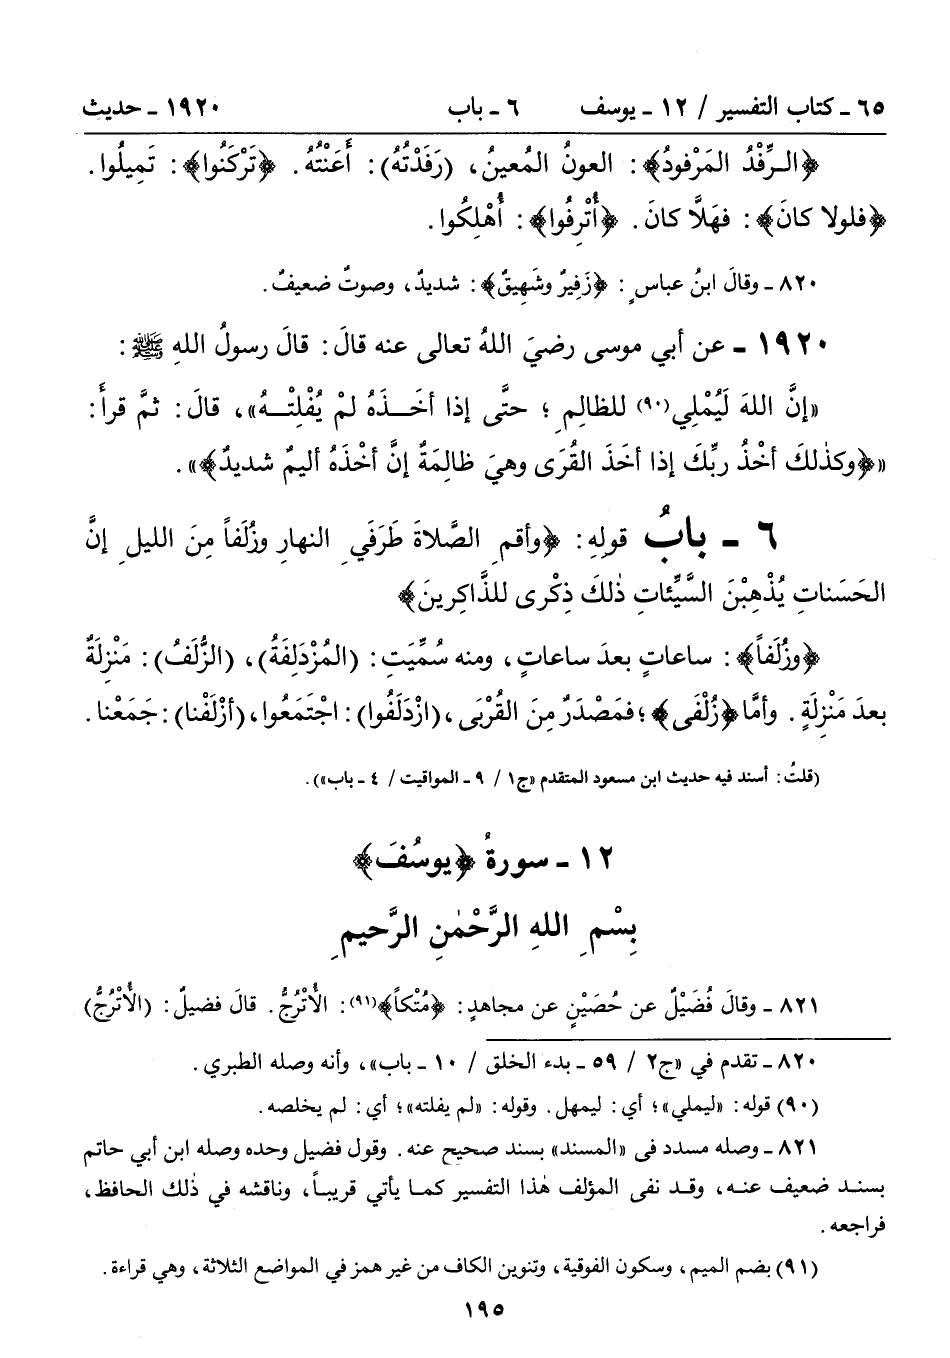 ٦٥ ـ كتاب التفسير / ١٢ ـ يوسف ٦ ـ باب ١٩٢٠ ـ حديث
﴿الـرِّفْدُ المَرْفودُ﴾: العونُ المُعينُ، (رَفَدْتُهُ): أَعَنْتُهُ. ﴿تَرْكَنُوا﴾: تَمِيلُوا.
﴿فلولا كانَ﴾: فهَلَّا كانَ. ﴿أُتْرِفُوا﴾: أُهْلِكُوا.
٨٢٠ ـ وقالَ ابنُ عباسٍ: ﴿زَفِيرٌ وشَهِيقٌ﴾: شديدٌ، وصوتٌ ضعيفٌ.
١٩٢٠ ـ عن أبي موسى رضيَ اللهُ تعالى عنه قالَ: قالَ رسولُ اللهِ ﷺ:
«إنَّ اللهَ لَيُمْلِي(٩٠) للظالِمِ؛ حتَّى إذا أخَـذَهُ لمْ يُفْلِتْـهُ»، قالَ: ثمَّ قرأَ:
«﴿وكذٰلكَ أخْذُ ربِّكَ إذا أخَذَ القُرَى وهيَ ظالِمَةٌ إنَّ أخْذَهُ أليمٌ شديدٌ﴾».
٦ ـ بابُ قولِهِ: ﴿وأقمِ الصَّلاةَ طَرَفَيِ النهارِ وزُلَفاً مِنَ الليلِ إنَّ
الحَسَناتِ يُذْهِبْنَ السَّيِّئاتِ ذٰلكَ ذِكْرى للذَّاكِرينَ﴾
﴿وزُلَفاً﴾: ساعاتٍ بعدَ ساعاتٍ، ومنه سُمِّيَتِ: (المُزْدَلِفَةُ)، (الزُّلَفُ): مَنْزِلَةٌ
بعدَ مَنْزِلَةٍ. وأمَّا ﴿زُلْفى﴾؛ فمَصْدَرٌ مِنَ القُرْبَى، (ازْدَلَفُوا): اجْتَمَعُوا، (أزْلَفْنا): جَمَعْنا.
(قلتُ: أسند فيه حديث ابن مسعود المتقدم «ج١ / ٩ ـ المواقيت / ٤ ـ باب»).
١٢ ـ سورةُ ﴿يوسُفَ﴾
بِسْمِ اللهِ الرَّحْمٰنِ الرَّحيمِ
٨٢١ ـ وقالَ فُضَيْلٌ عن حُصَيْنٍ عن مجاهدٍ: ﴿مُتْكاً﴾(٩١): الأُتْرُجُّ. قالَ فضيلٌ: (الأُتْرُجُّ)
٨٢٠ ـ تقدم في «ج٢ / ٥٩ ـ بدء الخلق / ١٠ ـ باب»، وأنه وصله الطبري.
(٩٠) قوله: «ليملي»؛ أي: ليمهل. وقوله: «لم يفلته»؛ أي: لم يخلصه.
٨٢١ ـ وصله مسدد في «المسند» بسند صحيح عنه. وقول فضيل وحده وصله ابن أبي حاتم
بسند ضعيف عنه، وقد نفى المؤلف هٰذا التفسير كما يأتي قريباً، وناقشه في ذٰلك الحافظ،
فراجعه.
(٩١) بضم الميم، وسكون الفوقية، وتنوين الكاف من غير همز في المواضع الثلاثة، وهي قراءة.
١٩٥